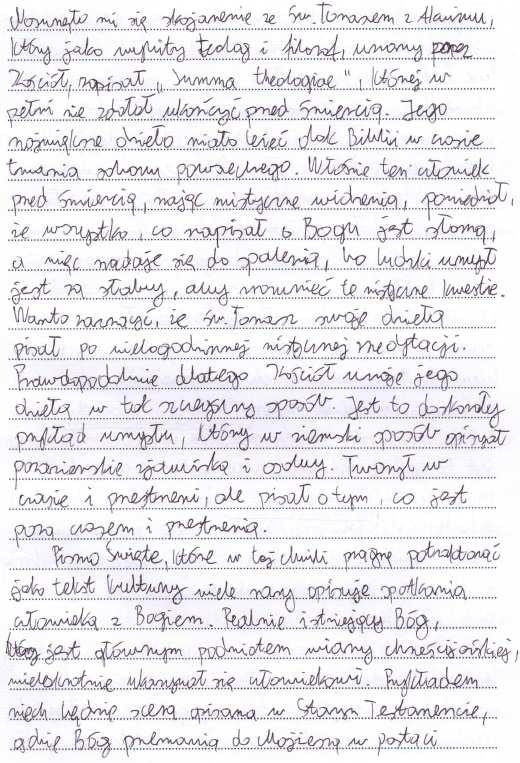 Nasunęło mi się skojarzenie ze św. Tomaszem z Akwinu,
który jako wybitny teolog i filozof, uznany przez
Kościół, napisał „Summa theologiae", której w
pełni nie zdołał ukończyć przed śmiercią. Jego
dzieło miało leżeć obok Biblii w czasie
trwania soboru powszechnego. Właśnie ten człowiek
przed śmiercią, mając mistyczne widzenia, powiedział,
że wszystko, co napisał o Bogu jest słomą,
a więc nadaje się do spalenia, bo ludzki umysł
jest za słaby, aby zrozumieć te mistyczne kwestie.
Warto zaznaczyć, że św. Tomasz swoje dzieła
pisał po wielogodzinnej mistycznej medytacji.
Prawdopodobnie dlatego Kościół uznaje jego
dzieła w tak szczególny sposób. Jest to doskonały
przykład umysłu, który w ziemski sposób opisywał
pozaziemskie zjawiska i osoby. Tworzył w
czasie i przestrzeni, ale pisał o tym, co jest
poza czasem i przestrzenią.
Pismo Święte, które w tej chwili pragnę potraktować
jako tekst kultury wiele razy opisuje spotkania
człowieka z Bogiem. Realnie istniejący Bóg,
który jest głównym podmiotem wiary chrześcijańskiej,
wielokrotnie ukazywał się człowiekowi. Przykładem
niech będzie scena opisana w Starym Testamencie,
gdzie Bóg przemawia do Mojżesza w postaci